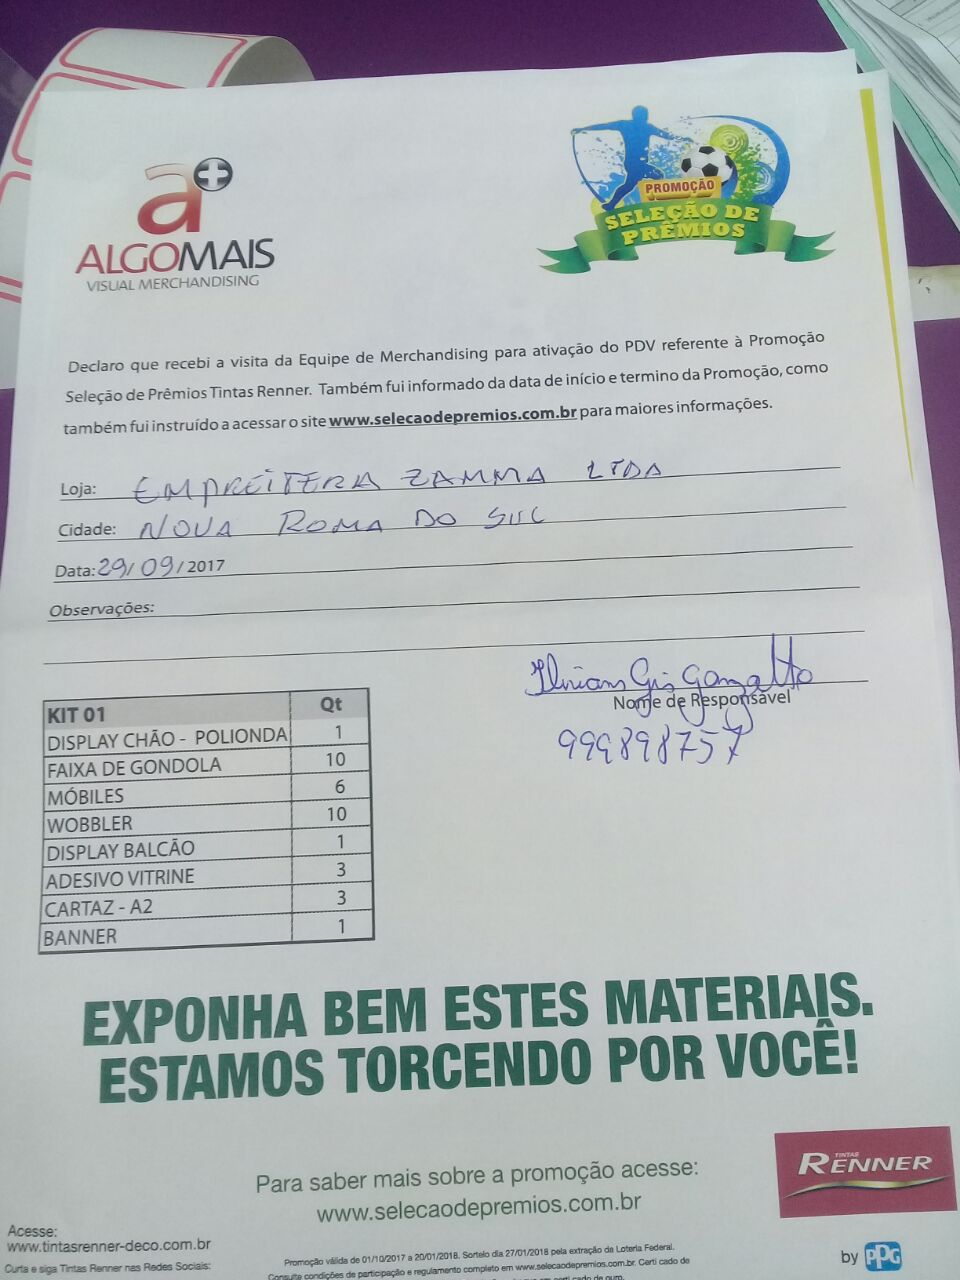 a+
ALGOMAIS
VISUAL MERCHANDISING
PROMOÇÃO
SELEÇÃO DE
PRÊMIOS
Declaro que recebi a visita da Equipe de Merchandising para ativação do PDV referente à Promoção
Seleção de Prêmios Tintas Renner. Também fui informado da data de início e termino da Promoção, como
também fui instruído a acessar o site www.selecaodepremios.com.br para maiores informações.
Loja: EMPREITERA ZAMMA LTDA
Cidade: NOVA ROMA DO SUL
Data: 29/09/2017
Observações:
Gonzatto
Nome de Responsável
999898757
KIT 01 Qt
DISPLAY CHÃO - POLIONDA 1
FAIXA DE GONDOLA 10
MÓBILES 6
WOBBLER 10
DISPLAY BALCÃO 1
ADESIVO VITRINE 3
CARTAZ - A2 3
BANNER 1
EXPONHA BEM ESTES MATERIAIS.
ESTAMOS TORCENDO POR VOCÊ!
TINTAS
RENNER
Para saber mais sobre a promoção acesse:
www.selecaodepremios.com.br
Acesse:
www.tintasrenner-deco.com.br
Curta e siga Tintas Renner nas Redes Sociais:
Promoção válida de 01/10/2017 a 20/01/2018. Sorteio dia 27/01/2018 pela extração da Loteria Federal.
Consulte condições de participação e regulamento completo em www.selecaodepremios.com.br. Certi cado de
em certi cado de ouro.
by PPG